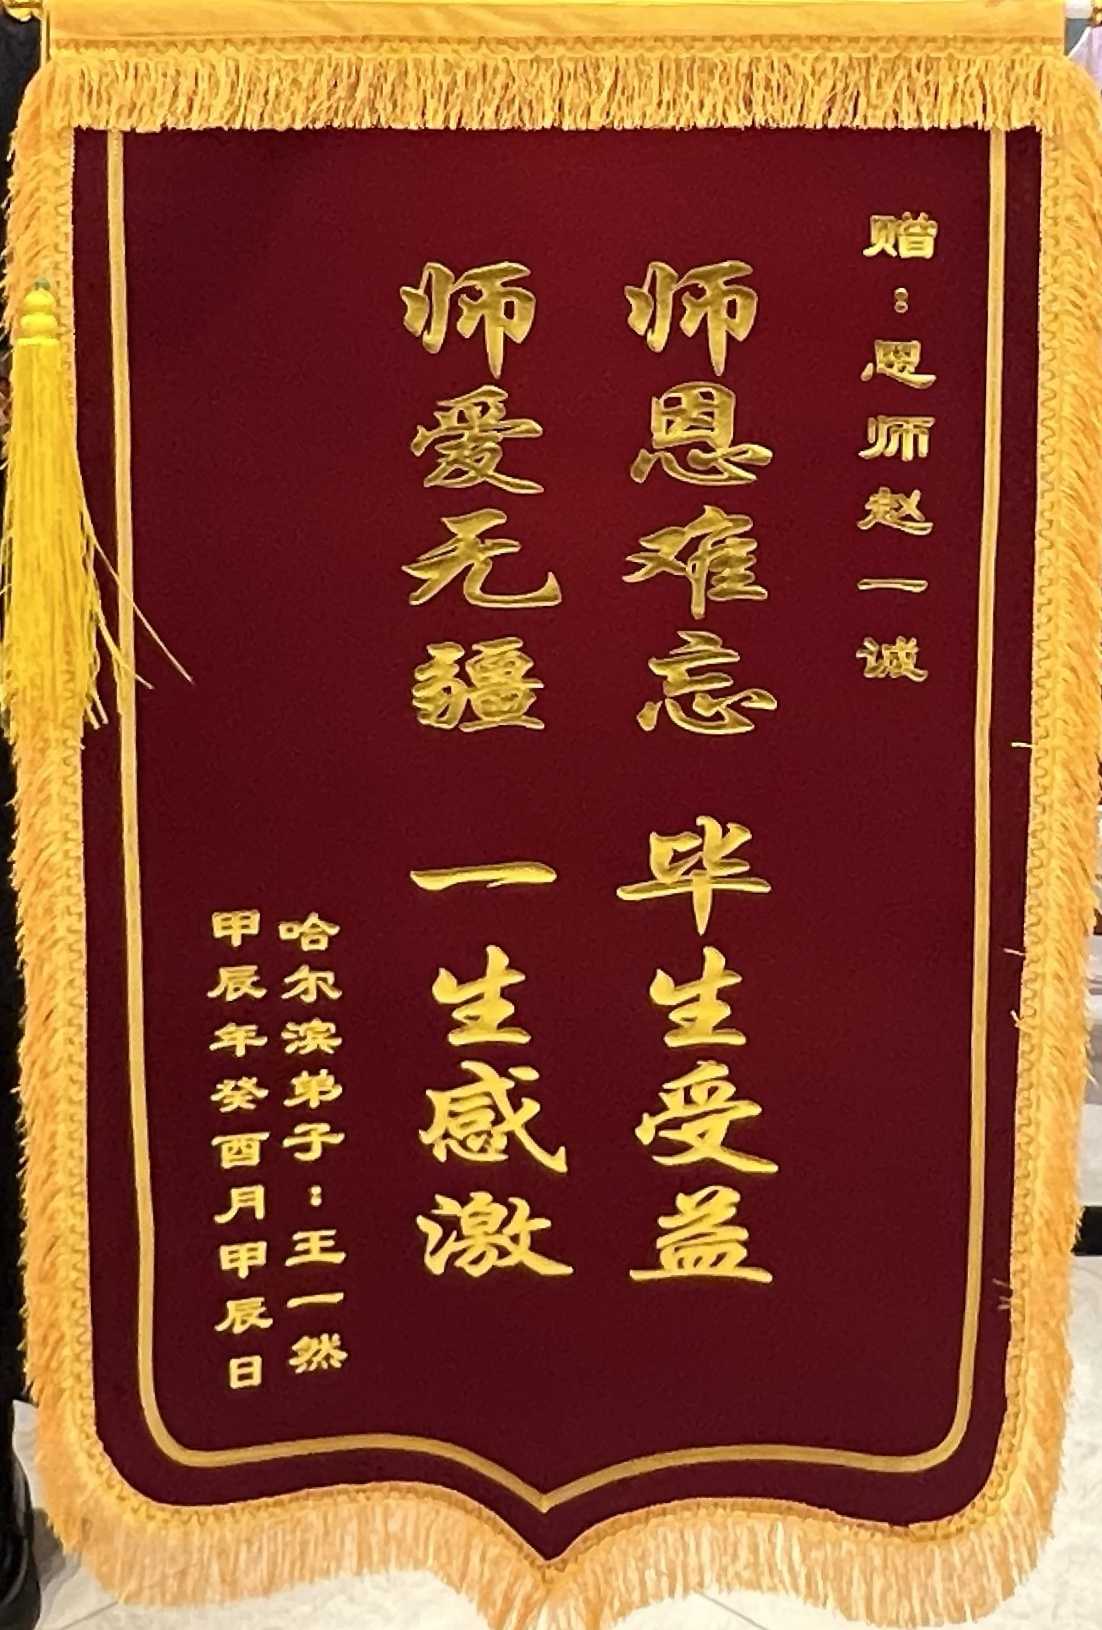 赠：恩师赵一诚
师恩难忘 毕生受益
师爱无疆 一生感激
哈尔滨弟子：王一然
甲辰年癸酉月甲辰日